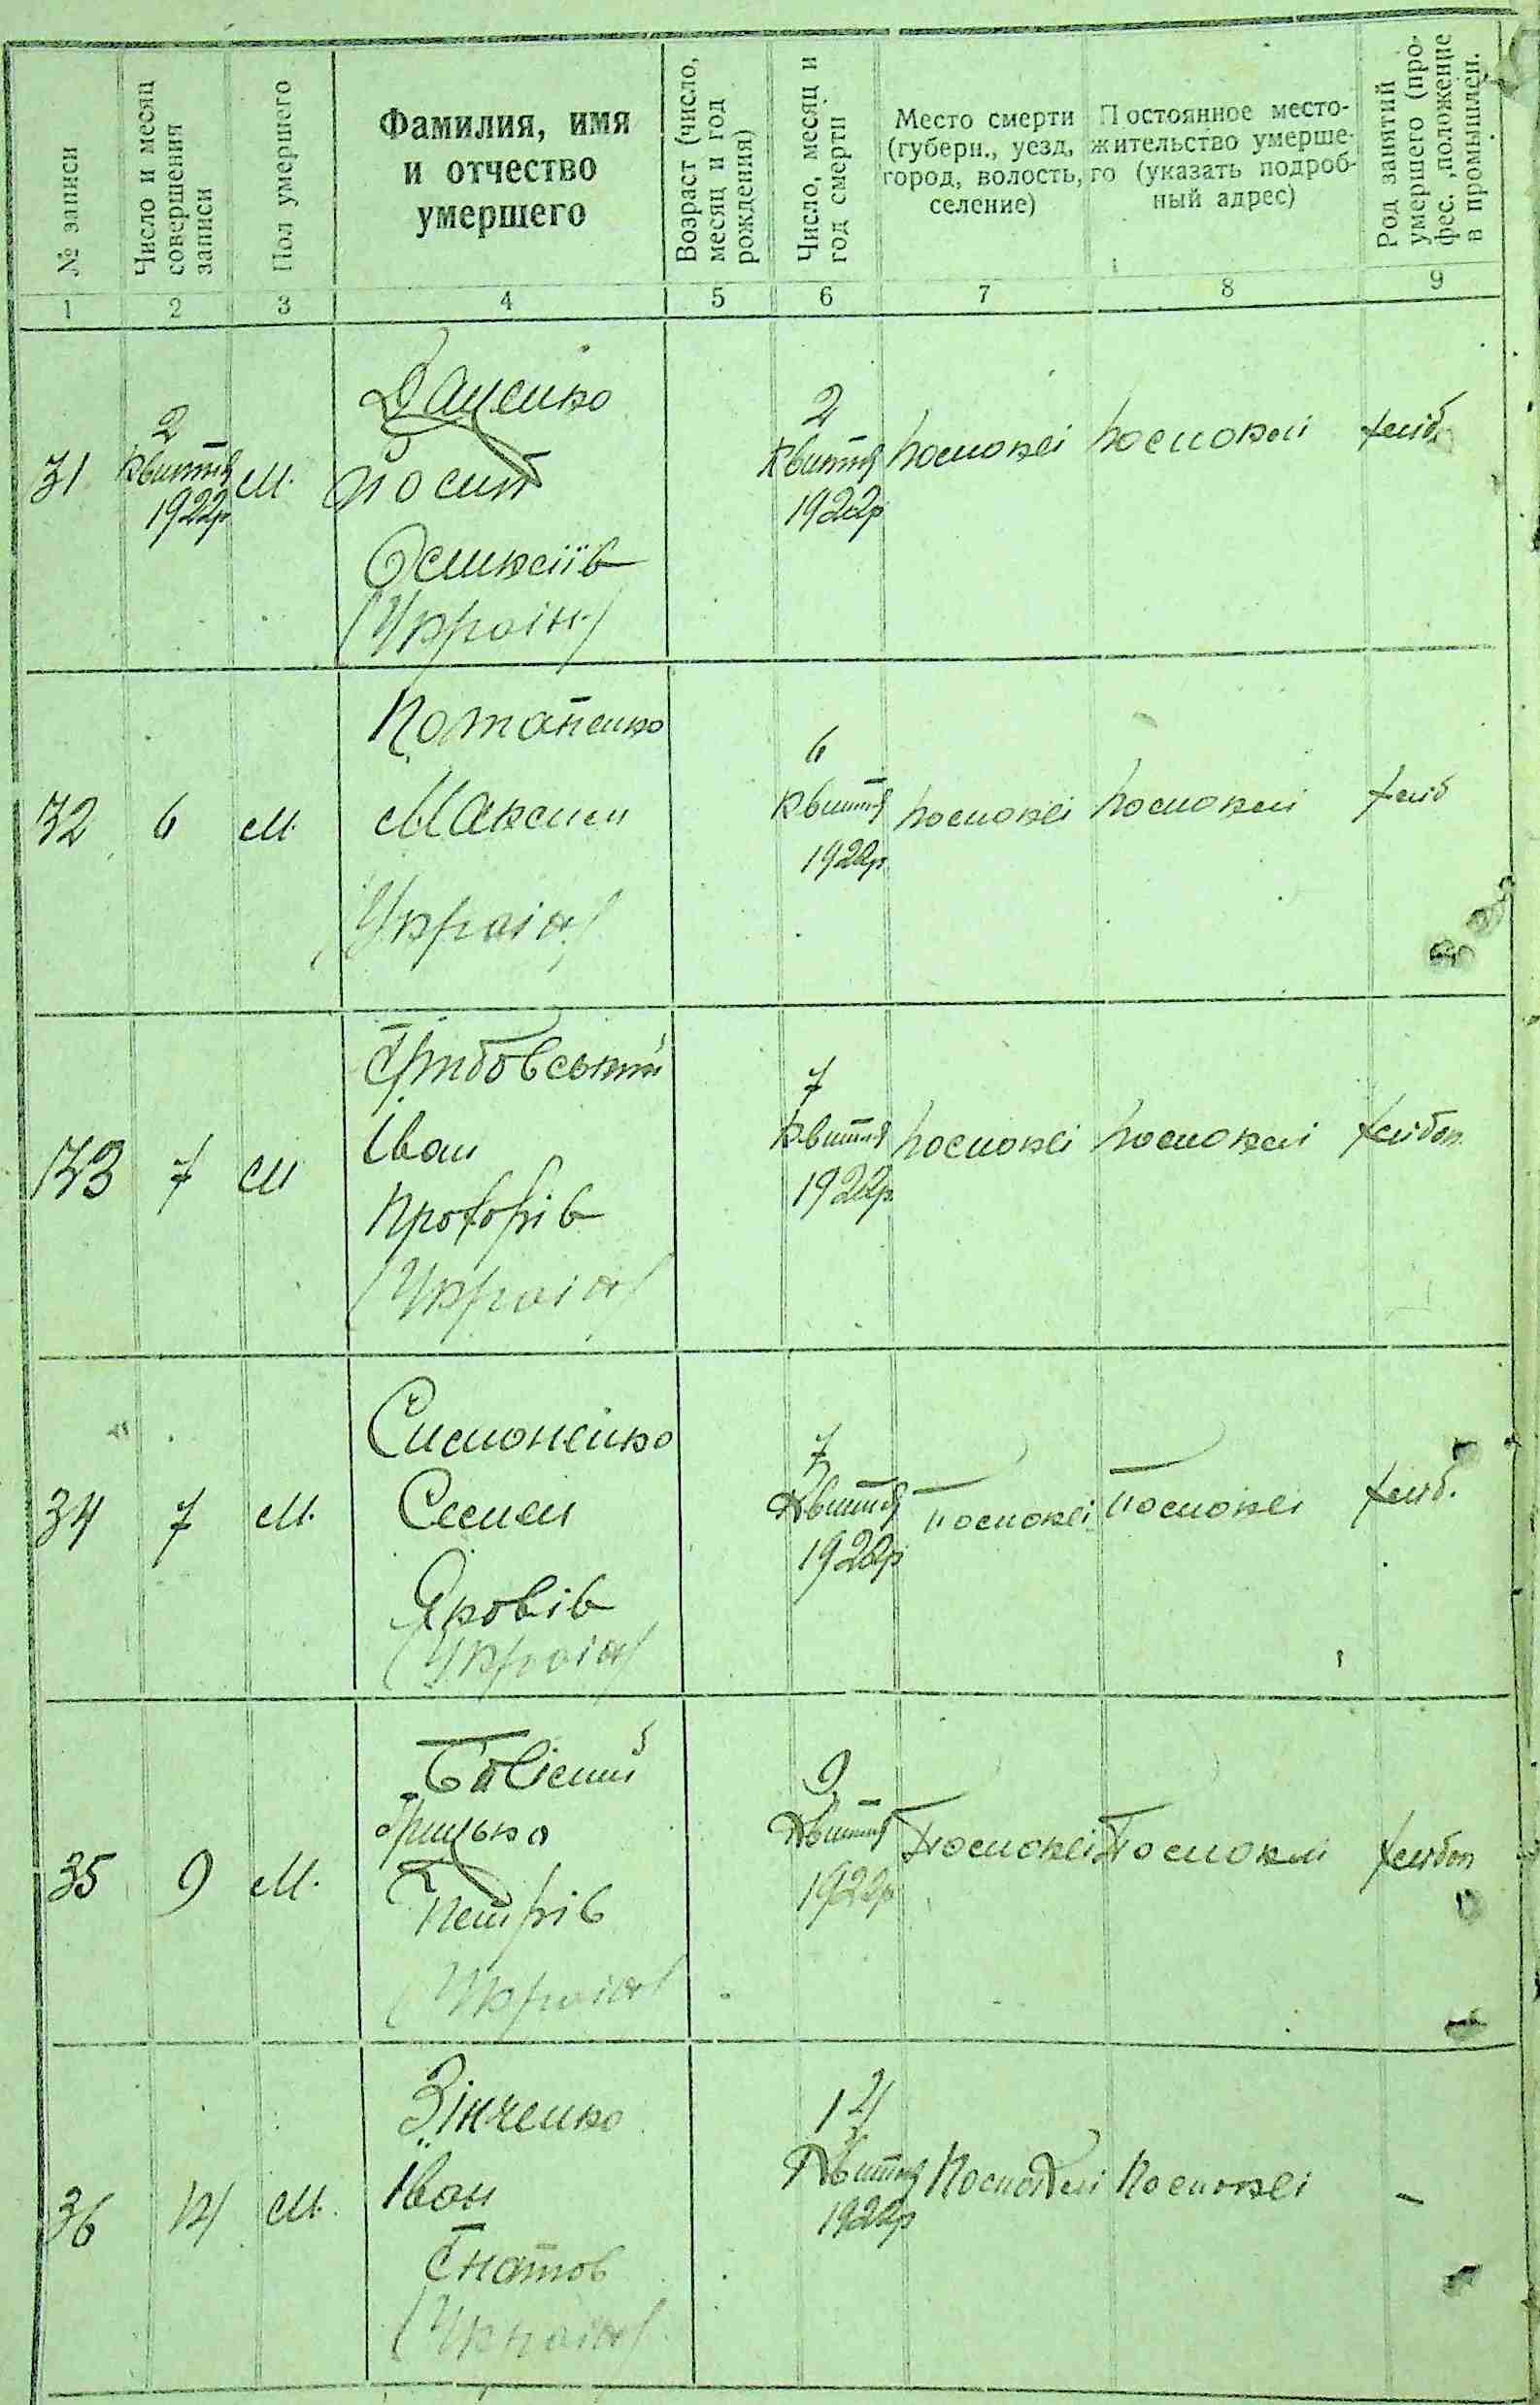 № записи
Число и месяц
совершения
записи
Пол умершего
Фамилия, имя
и отчество
умершего
Возраст (число,
месяц и год
рождения)
Число, месяц и
год смерти
Место смерти
(губерн., уезд,
город, волость,
селение)
Постоянное место-
жительство умерше-
го (указать подроб-
ный адрес)
Род занятий
умершего (про-
фес. ,положение
в промышлен.
1 2 3 4 5 6 7 8 9
31
2
квітня
1922р
М.
Даценко
Йосип
(Україн.)
2
Квітня
1922р
хліб.
32
6
М.
Потапенко
Максим
(Україн)
6
квітня
1922р.
хліб
33
7
М
Грибовський
Іван
Прохорів
(Україн)
7
квітня
1922р.
хлібор.
34
7
М.
Симоненко
Семен
Яковів
(Україн)
7
Квітня
1922р
хліб.
35
9
М.
Грицько
Петрів
(Україн)
9
Квітня
1922р
хлібор
36
14
М.
Зінченко
Іван
Гнатов
(Україн)
14
Квітня
1922р
-